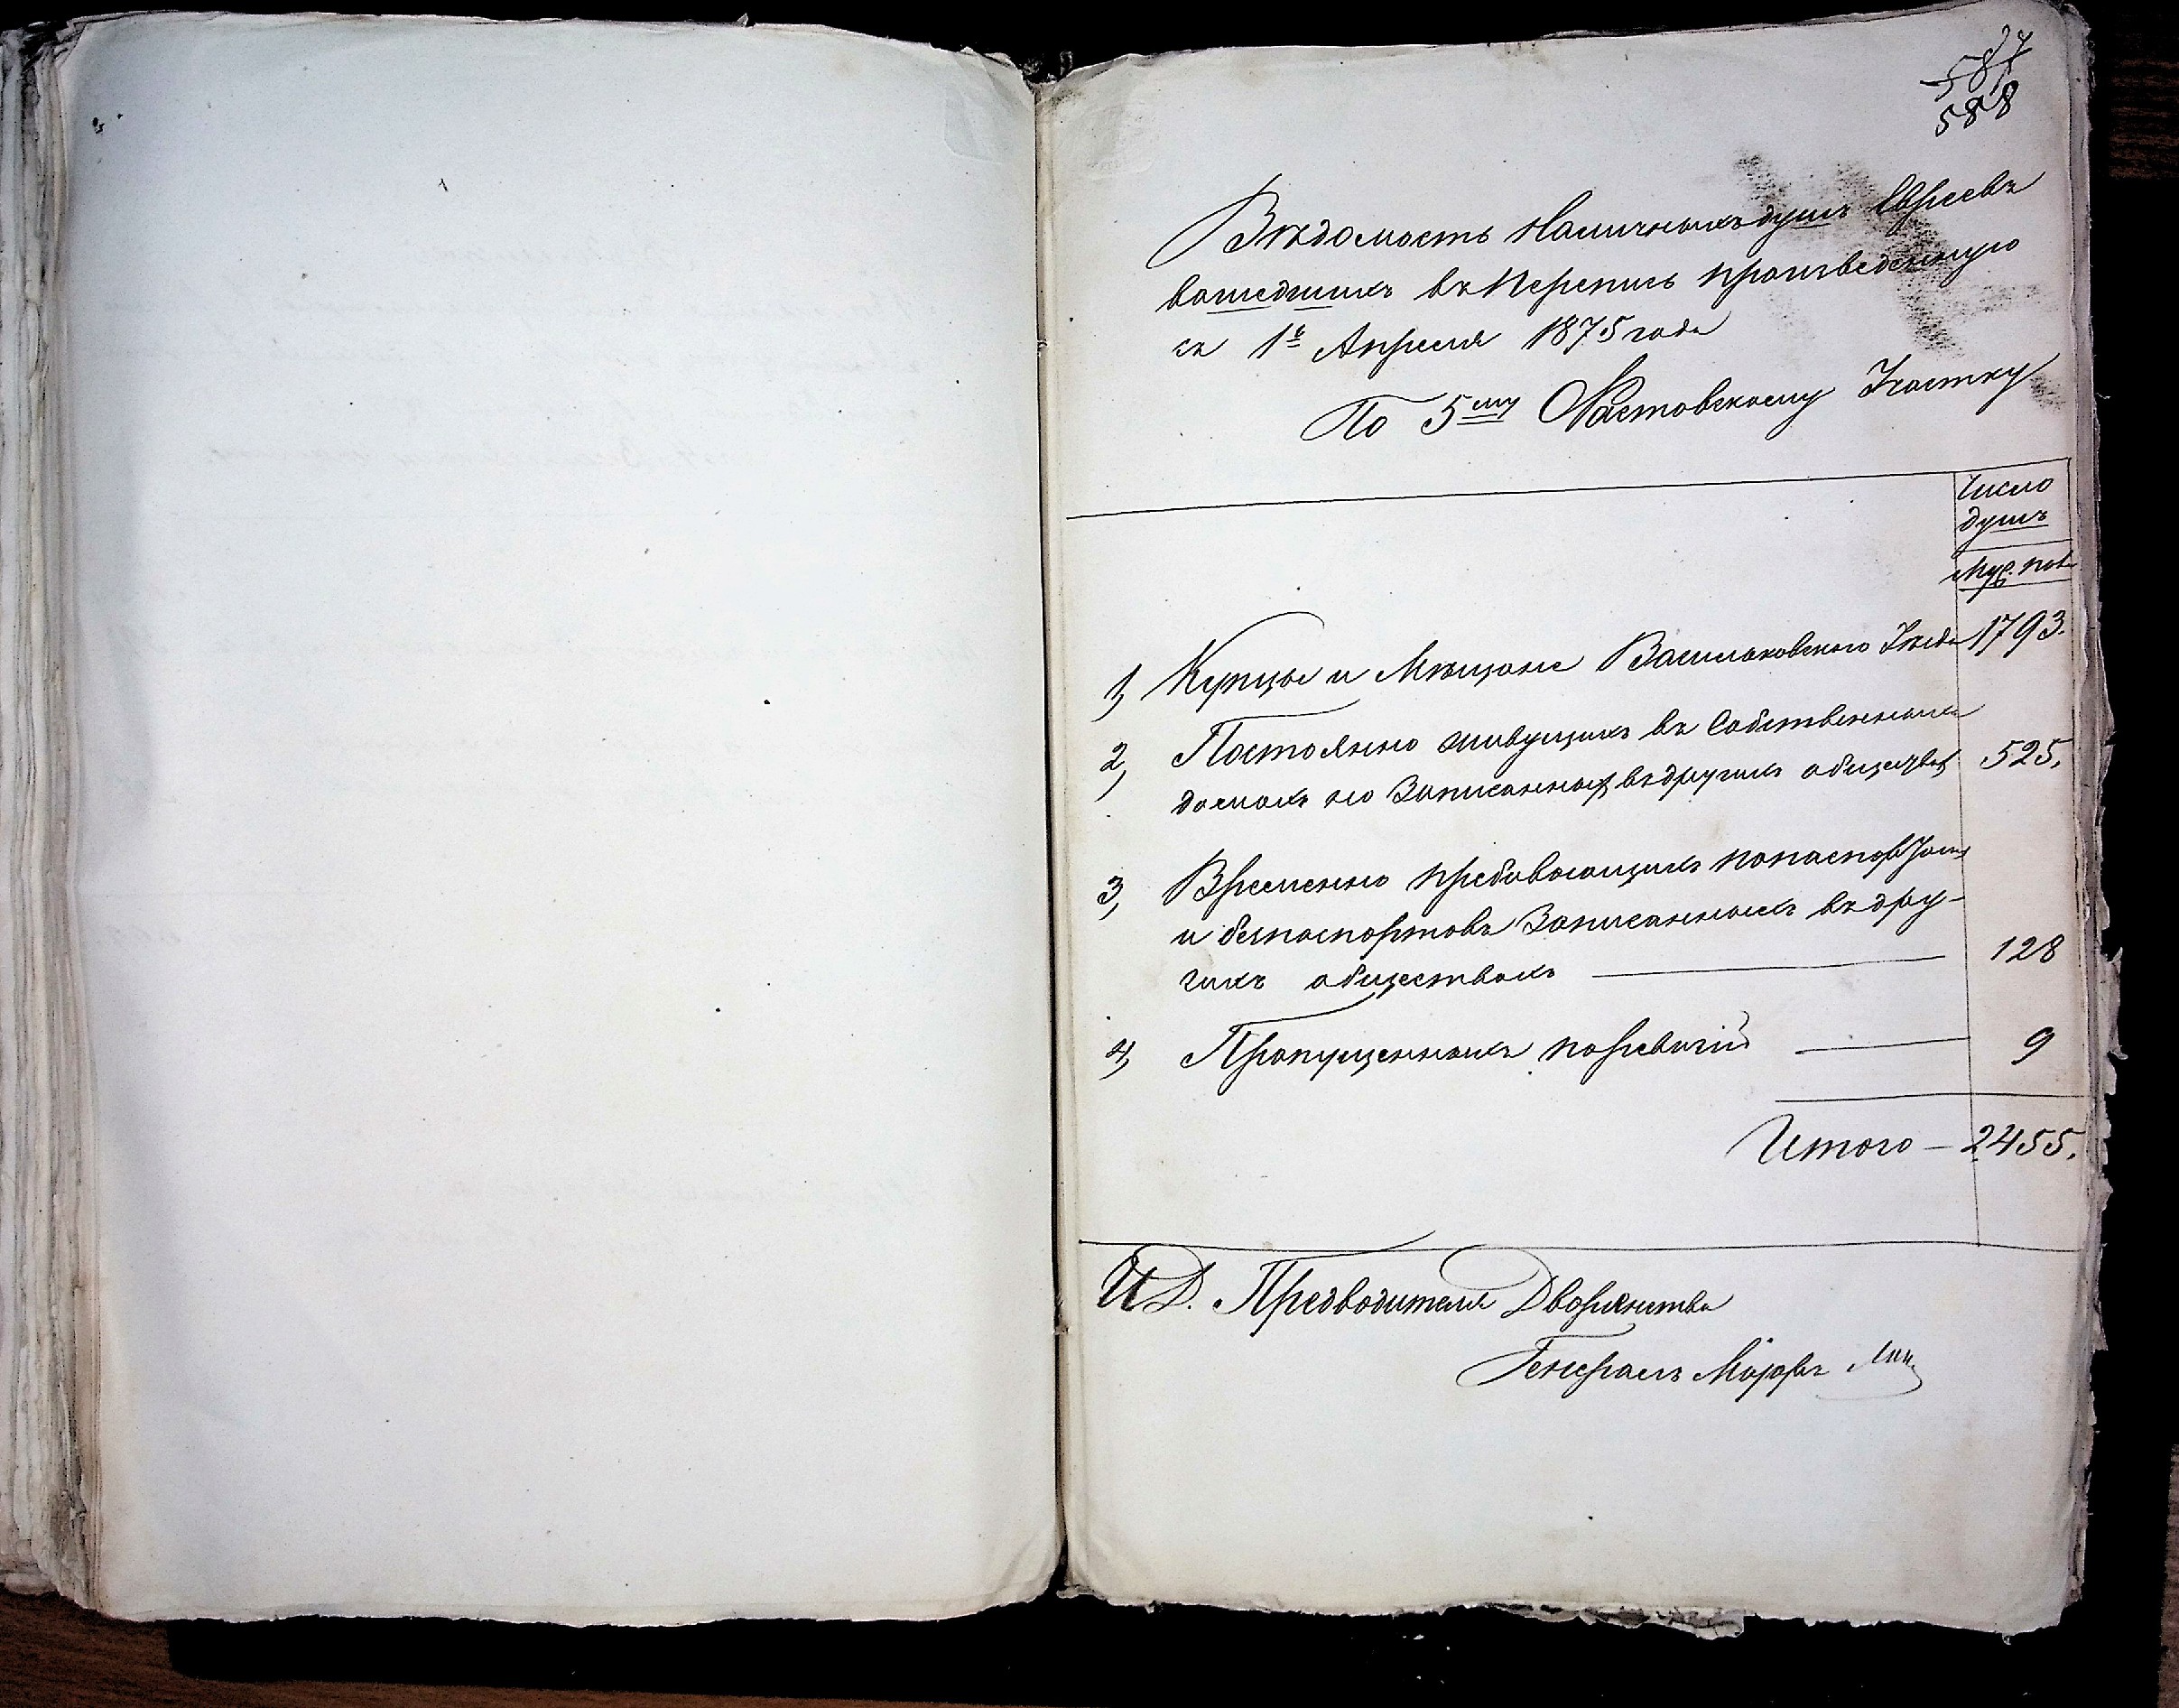 587
588
Вѣдомость наличныхъ душъ Евреевъ
вошедшихъ въ перепись произведенную
съ 1е Апреля 1875 года
По 5му Фастовскому Участку
Число
душъ
Муж. пол.
1, Купцы и Мѣщане Васильковского Уѣзда 1793.
2, Постоянно живущихъ въ собственныхъ
домахъ но записанныхъ въ другихъ обществах 525.
3, Временно пребивающихъ по паспортамъ
и безпаспортовъ записанныхъ въ дру-
гихъ обществахъ 128
4, Пропущенныхъ по ревизіи 9
Итого – 2455.
И.Д. Предводителя Дворянства
Генералъ Маіоръ